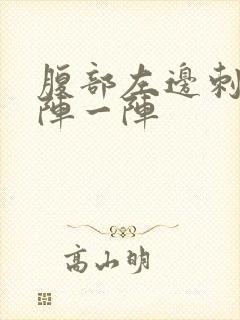 腹部左邊刺
陣一陣
高山明